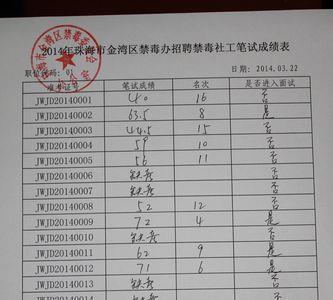 2014年珠海市金湾区禁毒办招聘禁毒社工笔试成绩表
职位代码：01 日期：2014.03.22
准考证号 笔试成绩 名次 是否进入面试
JWJD20140001 40 16 否
JWJD20140002 63.5 8 是
JWJD20140003 44.5 15 否
JWJD20140004 59 10 否
JWJD20140005 56 11 否
JWJD20140006 缺考 否
JWJD20140007 缺考 否
JWJD20140008 52 12 否
JWJD20140009 72 4 是
JWJD20140010 缺考 否
JWJD20140011 62 9 是
JWJD20140012 71 6 是
JWJD20140013 缺考 否
JWJD20140014 缺考 否